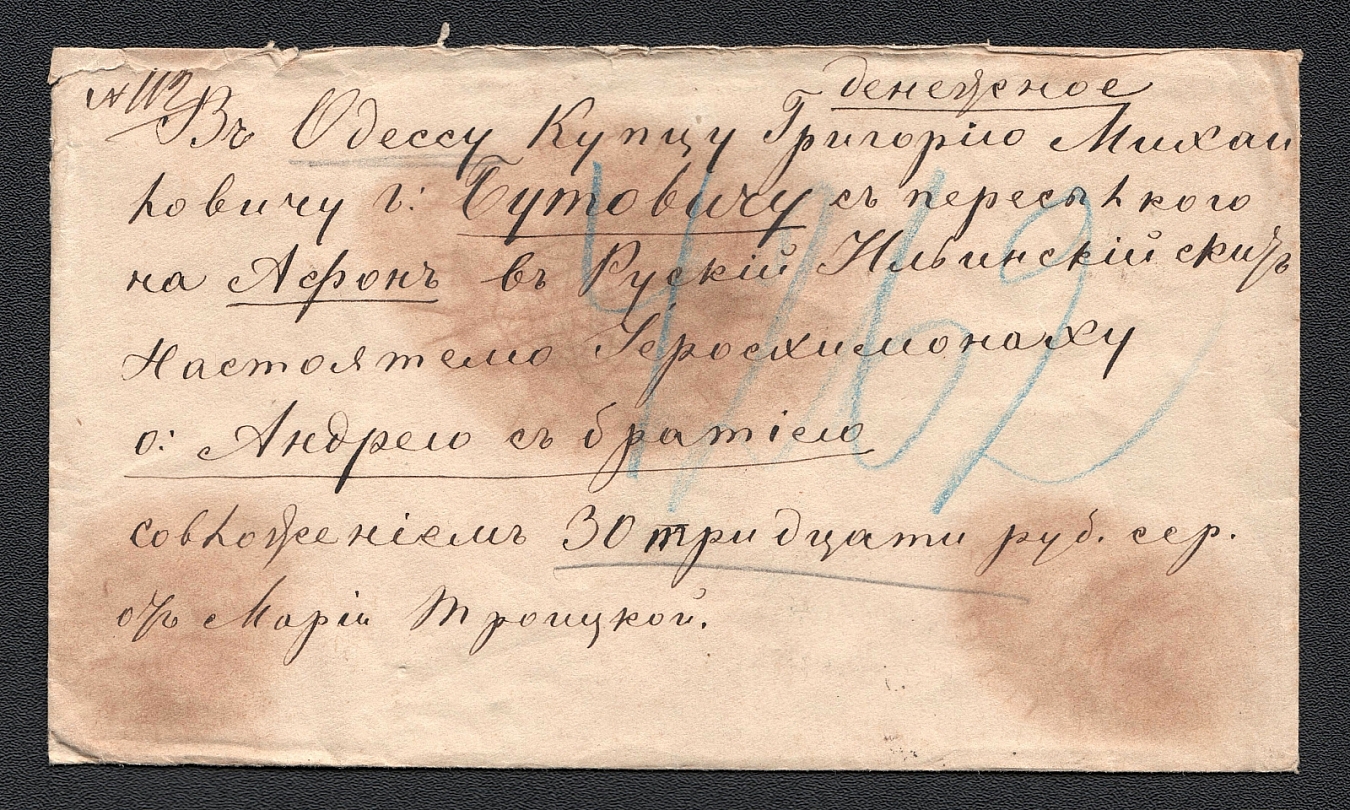 № 112
денежное
Въ Одессу Купцу Григорію Михаи
ловичу г: Бутовичу съ пересылкого
на Афонъ въ Рускій Ильинскій скитъ
Настоятелю Іеросхимонаху
о: Андрею съ братіею
совложеніемъ 30 тридцати руб. сер.
отъ Маріи Троицкой.
4762